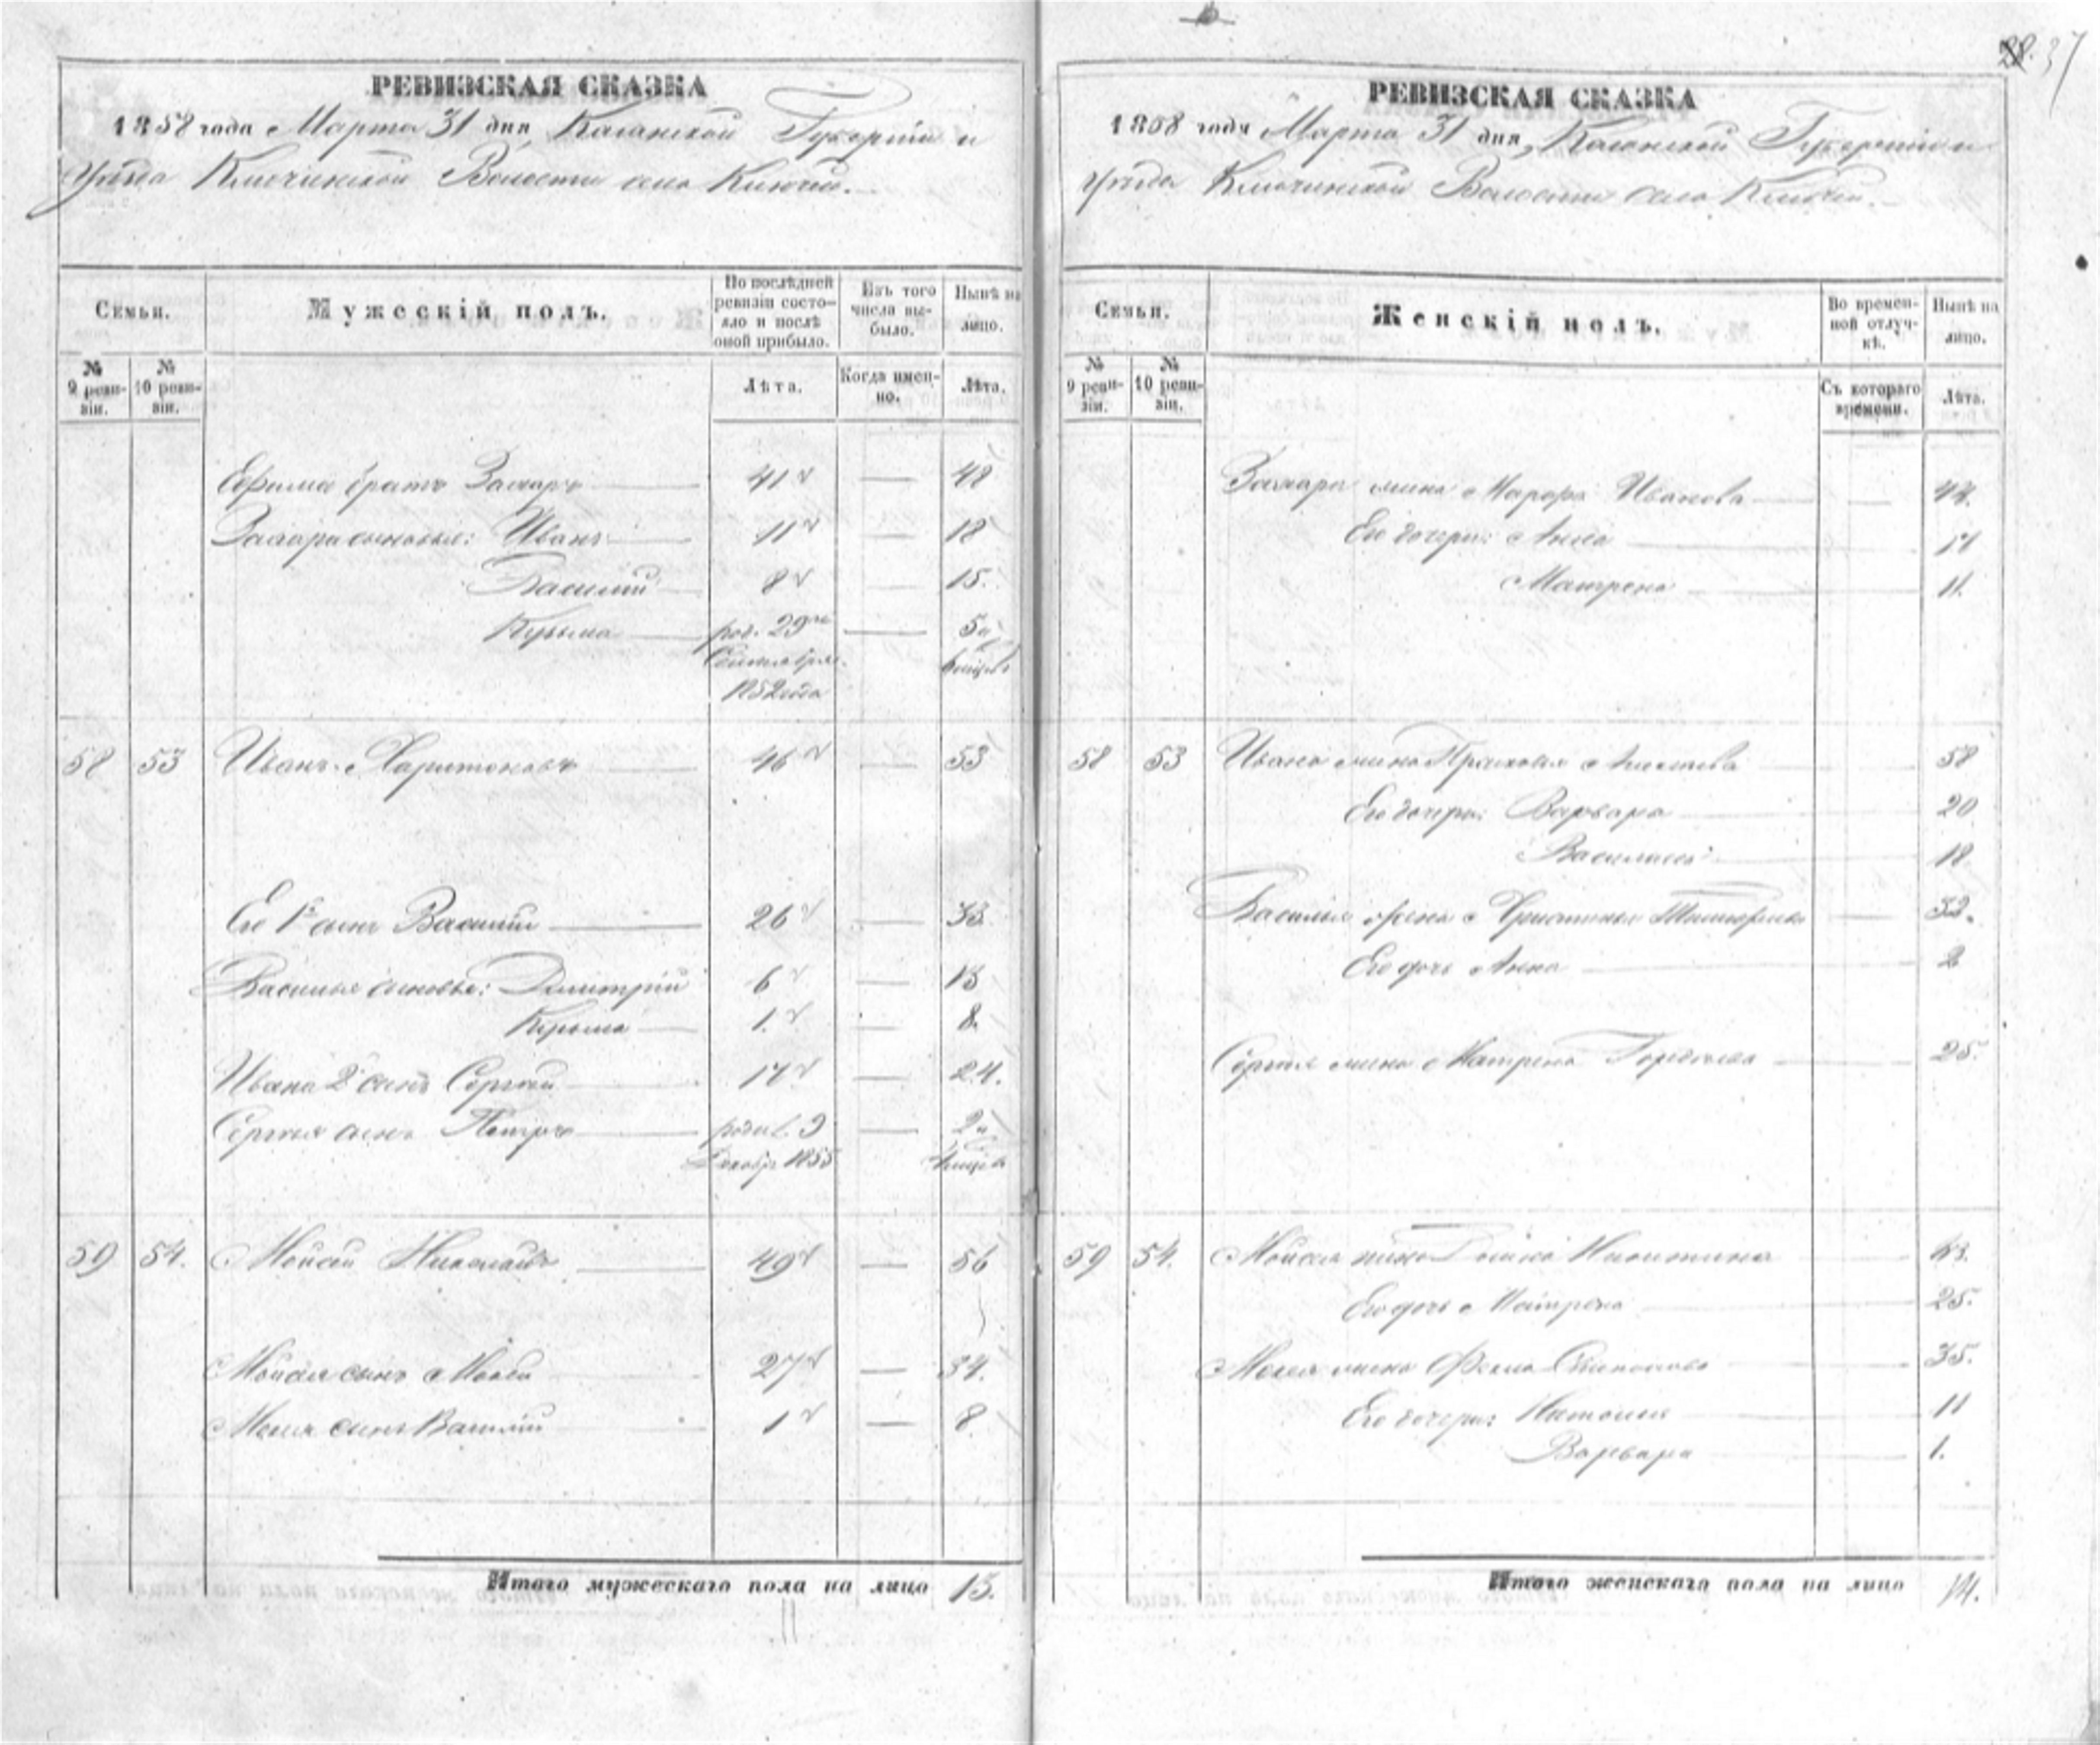 28. 37
РЕВИЗСКАЯ СКАЗКА
1858 года Марта 31 дня, Казанской Губерніи и
уѣзда Ключинской Волости села Ключи.
Семьи.
Мужескій полъ.
По послѣдней ревизіи состояло и послѣ оной прибыло.
Изъ того числа выбыло.
Нынѣ на лицо.
№ 9 ревизіи.
№ 10 ревизіи.
Лѣта.
Когда именно.
Лѣта.
Ефима братъ Захаръ 41 — 48
Захара сыновья: Иванъ 11 — 18
Василій 8 — 15.
Кузьма род. 29 — 5 и
Сентября 6 мѣсяцъ
1852 года
58 53 Иванъ Харитоновъ 46 — 53
Его 1й сынъ Василій 26 — 33
Василья сыновья: Дмитрій 6 — 13
Кузьма 1. — 8.
Ивана 2й сынъ Сергѣй 17 — 24.
Сергѣя сынъ Петръ родил. 9 — 2 и
Декабр 1855
59 54. Мойсей Николаевъ 49 — 56
Мойсея сынъ Мокей 27 — 34.
Мокея сынъ Василій 1 — 8
Итого мужескаго пола на лицо 13.
РЕВИЗСКАЯ СКАЗКА
1858 года Марта 31 дня, Казанской Губерніи и
уѣзда Ключинской Волости села Ключи.
Семьи.
Женскій полъ.
Во временной отлучкѣ.
Нынѣ на лицо.
№ 9 ревизіи.
№ 10 ревизіи.
Съ котораго времени.
Лѣта.
Захара жена Марфа Иванова —
Его дочери: Анна 17
Матрена 11.
58 53 Ивана жена Прасковья 58
Его дочери: Варвара 20
Василиса 18
Василья жена Христинья — 32.
Его дочь Анна 2
Сергѣя жена Матрена Гордѣева 25.
59 54. Мойсея жена Никитина
Его дочь Матрена 25.
Мокея жена Фекла 35.
Его дочери: Наталья 11
Варвара 1.
Итого женскаго пола на лицо 14.